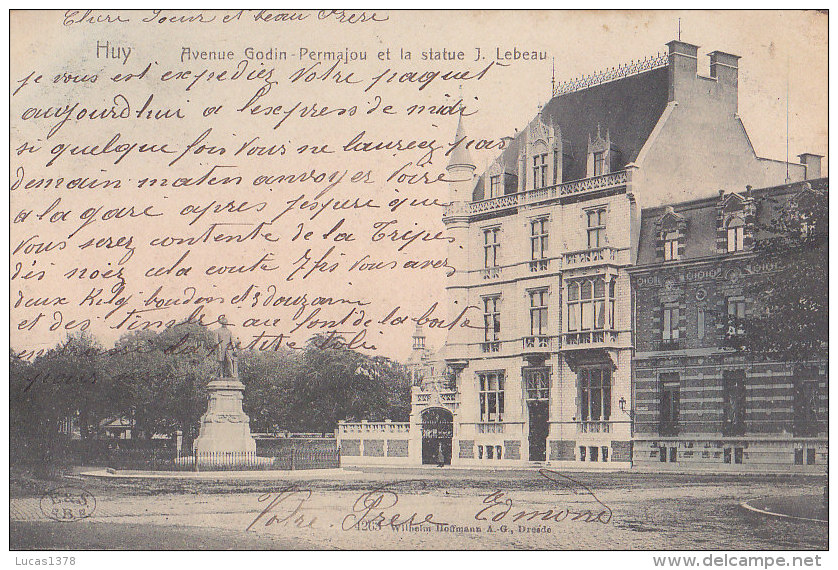 Chere Soeur et beau Frere
Huy Avenue Godin-Permajou et la statue J. Lebeau
je vous est expediez Votre paquet
aujourd'hui a l'express de midi
si quelque fois vous ne laureez pas
demain matin anvoyer Voire
a la gare apres j'espere que
Vous serez contente de la Tripes
dis noiez cela coute 7 fis Vous avez
deux Kilog boudin et 3 douzaine
et des timbre au font de la boite
en
pour
Votre Frere Edmond
4263 Wilhelm Hoffmann A.-G., Dresde
Lucas1378
www.delcampe.net